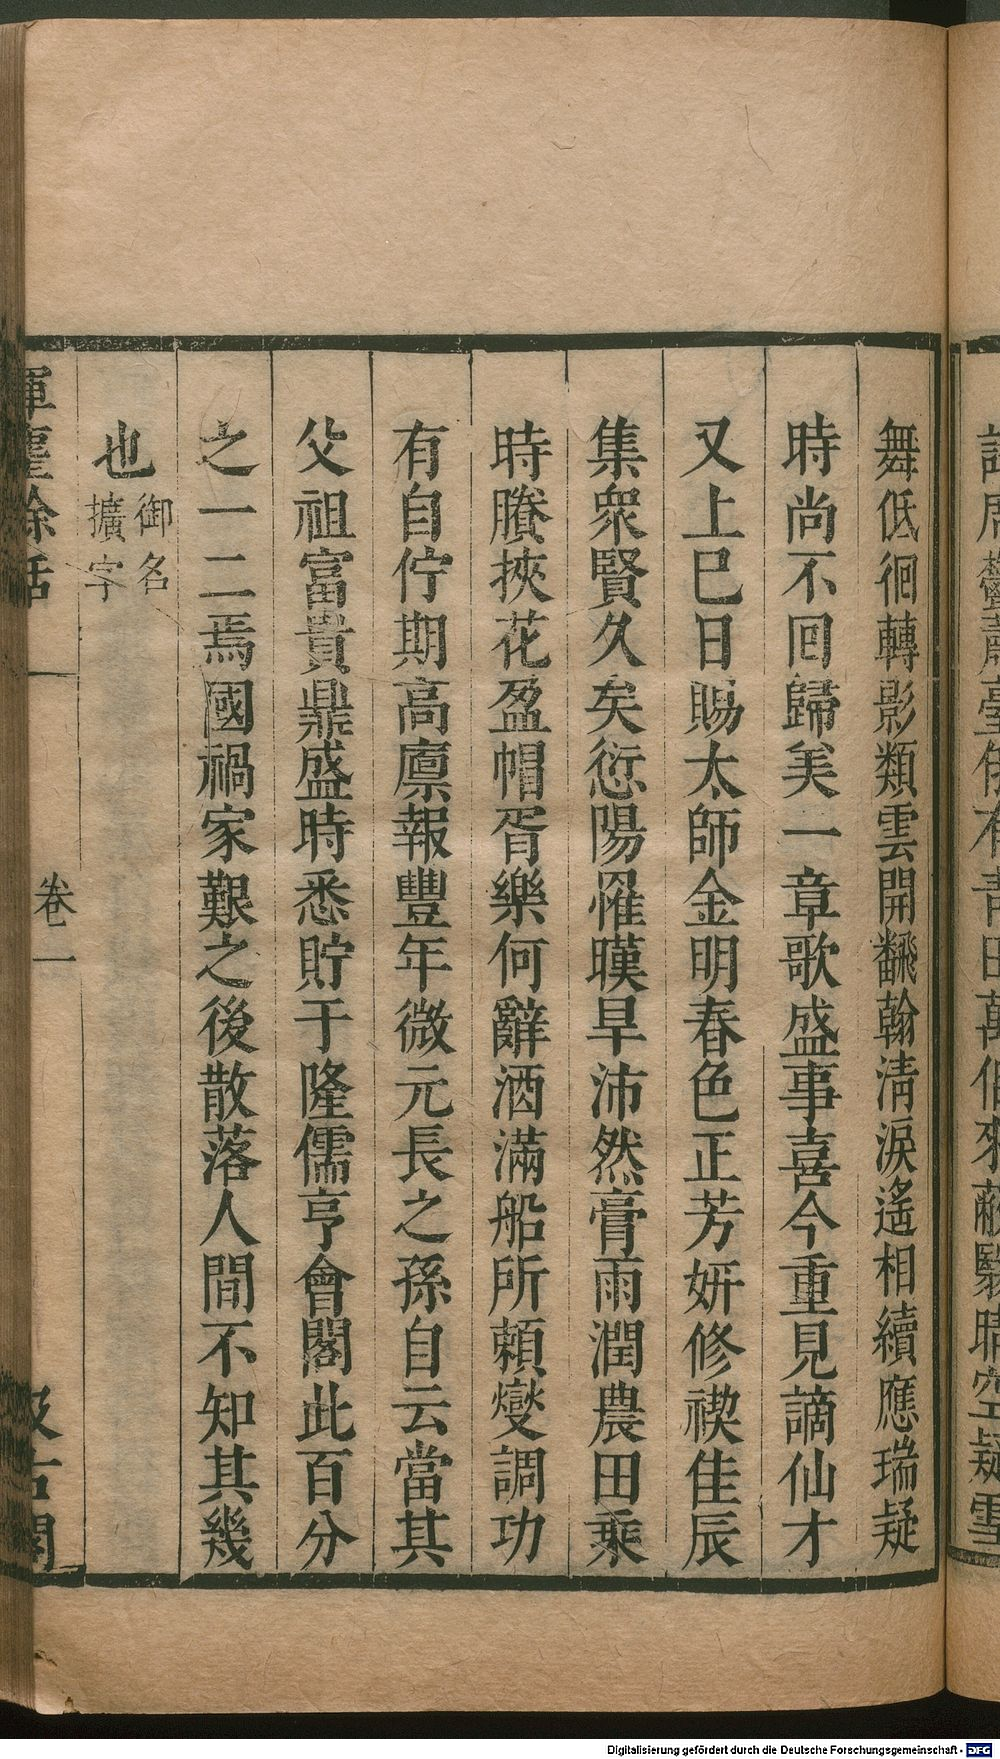 舞低徊轉影類雲開飜翰淸淚遙相續應瑞疑
時尚不回歸美一章歌盛事喜今重見謫仙才
又上巳日賜太師金明春色正芳妍修禊佳辰
集衆賢久矣愆陽罹暵旱沛然膏雨潤農田乘
時賸挾花盈帽胥樂何辭酒滿船所賴燮調功
有自佇期高廪報豐年微元長之孫自云當其
父祖富貴鼎盛時悉貯于隆儒亨會閣此百分
之一二焉國禍家艱之後散落人間不知其幾
也御名
擴字
揮麈餘話
卷一
汲古閣
Digitalisierung gefördert durch die Deutsche Forschungsgemeinschaft - DFG